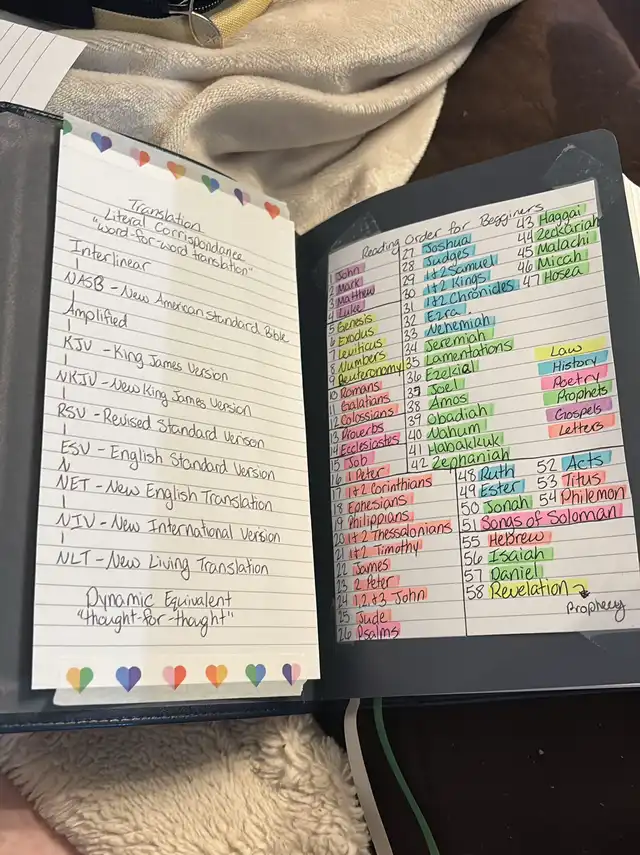 Translation
"Literal Corrispondance
"word-for-word translation"
Interlinear
NASB - New American Standard Bible
Amplified
KJV - King James Version
NKJV - New King James Version
RSV - Revised Standard Verison
ESV - English Standard Version
N
NET - New English Translation
NIV - New International Version
NLT - New Living Translation
Dynamic Equivalent
"thought-for-thought"
Reading Order for Begginers
1 John
2 Mark
3 Matthew
4 Luke
5 Genesis
6 Exodus
7 Leviticus
8 Numbers
9 Deuteronomy
10 Romans
11 Galatians
12 Colossians
13 Proverbs
14 Ecclesiastes
15 Job
16 1 Peter
17 1+2 Corinthians
18 Ephesians
19 Philippians
20 1+2 Thessalonians
21 1+2 Timothy
22 James
23 2 Peter
24 1,2,+3 John
25 Jude
26 Psalms
27 Joshua
28 Judges
29 1+2 Samuel
30 1+2 Kings
31 1+2 Chronicles
32 Ezra
33 Nehemiah
34 Jeremiah
35 Lamentations
36 Ezekial
37 Joel
38 Amos
39 Obadiah
40 Nahum
41 Habakkuk
42 Zephaniah
43 Haggai
44 Zeckariah
45 Malachi
46 Micah
47 Hosea
Law
History
Poetry
Prophets
Gospels
Letters
48 Ruth
49 Ester
50 Jonah
51 Songs of Soloman
52 Acts
53 Titus
54 Philemon
55 HeBrew
56 Isaiah
57 Daniel
58 Revelation
Prophecy